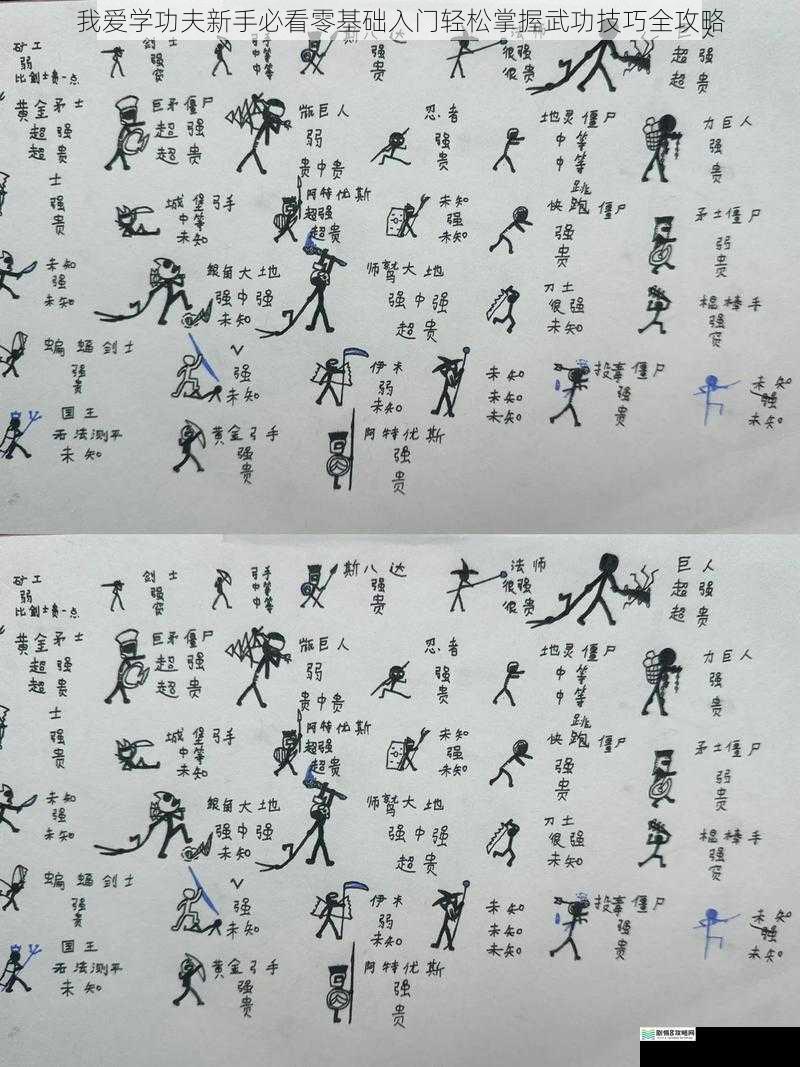 我爱学功夫新手必看零基础入门轻松掌握武功技巧全攻略
矿工
弱
比剑士贵一点
剑士
强
弓手
中等
中等
斯八达
强
贵
法师
很强
很贵
巨人
超强
超贵
黄金矛士
超强
超贵
巨矛僵尸
超强
超贵
巨人
弱
贵中贵
忍者
强
贵
地灵僵尸
中等
中等
力巨人
强
贵
士
强
贵
城堡弓手
中等
未知
阿特优斯
超强
超贵
未知
强
未知
跳
快跑僵尸
强
贵
矛士僵尸
弱
贵
未知
强
未知
银角大地
强中强
未知
师鹫大地
强中强
超贵
刀士
很强
未知
棍棒手
强
贵
蝙蝠剑士
强
贵
V
强
未知
伊木
弱
未知
未知
未知
未知
投毒僵尸
强
贵
未知
强
未知
国王
无法测平
未知
黄金弓手
强
贵
阿特优斯
强
贵
矿工
弱
比剑士贵一点
剑士
强
弓手
中等
中等
斯八达
强
贵
法师
很强
很贵
巨人
超强
超贵
黄金矛士
超强
超贵
巨矛僵尸
超强
超贵
巨人
弱
贵中贵
忍者
强
贵
地灵僵尸
中等
中等
力巨人
强
贵
士
强
贵
城堡弓手
中等
未知
阿特优斯
超强
超贵
未知
强
未知
跳
快跑僵尸
强
贵
矛士僵尸
弱
贵
未知
强
未知
银角大地
强中强
未知
师鹫大地
强中强
超贵
刀士
很强
未知
棍棒手
强
贵
蝙蝠剑士
强
贵
V
强
未知
伊木
弱
未知
未知
未知
未知
投毒僵尸
强
贵
未知
强
未知
国王
无法测平
未知
黄金弓手
强
贵
阿特优斯
强
贵
剧情8攻略网